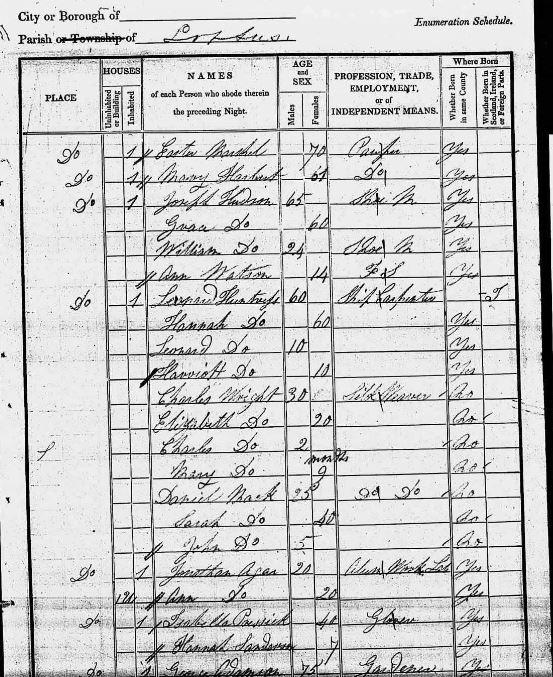 City or Borough of
Enumeration Schedule.
Parish or Township of Loftus.
PLACE
HOUSES
Uninhabited or Building
Inhabited
NAMES
of each Person who abode therein
the preceding Night.
AGE and SEX
Males
Females
PROFESSION, TRADE,
EMPLOYMENT,
or of
INDEPENDENT MEANS.
Where Born
Whether Born in same County
Whether Born in Scotland, Ireland, or Foreign Parts
Do 1 Easter 70 Yes
Do 1 Mary 61 Do Yes
Do 1 Joseph Hudson 65 Shoe M Yes
Grace Do 60 Yes
William Do 24 Shoe M Yes
Ann Watson 14 F S Yes
Do 1 Leonard Huntrods 60 Ship Carpenter
Hannah Do 60 Yes
Leonard Do 10 Yes
Harriott Do 10 Yes
Charles Wright 30 Silk Weaver No
Elizabeth Do 20 No
Charles Do 2 No
Mary Do 9 months No
Daniel Mack 25 Do Do No
Sarah Do 40 No
John Do 5 No
Do 1 Jonathan Agar 20 Alum Work Lab Yes
1U Ann Do 20 Yes
Do 1 Isabella 40 Yes
Hannah Sanderson 7 Yes
Do 1 George Adamson 75 Gardener Yes